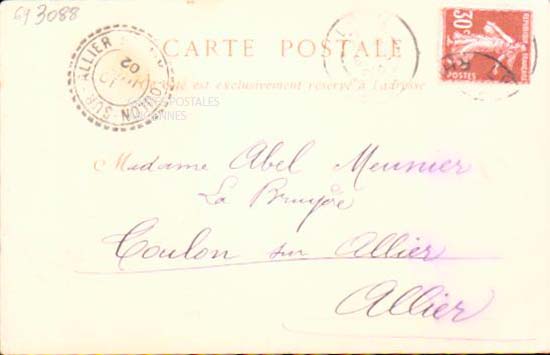 69 3088
CARTE POSTALE
Ce côté est exclusivement réservé à l'adresse
SUR-ALLIER
02
POSTALES
30c
Madame Abel Meunier
La Bruyère
Coulon sur Allier
Allier